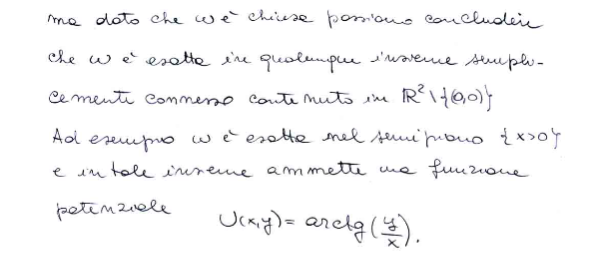 ma dato che ω è chiusa possiamo concludere
che ω è esatta in qualunque insieme sempli-
cemente connesso contenuto in ℝ²\{(0,0)}
Ad esempio ω è esatta nel semipiano {x>0}
e in tale insieme ammette una funzione
potenziale U(x,y)= arctg(y/x).